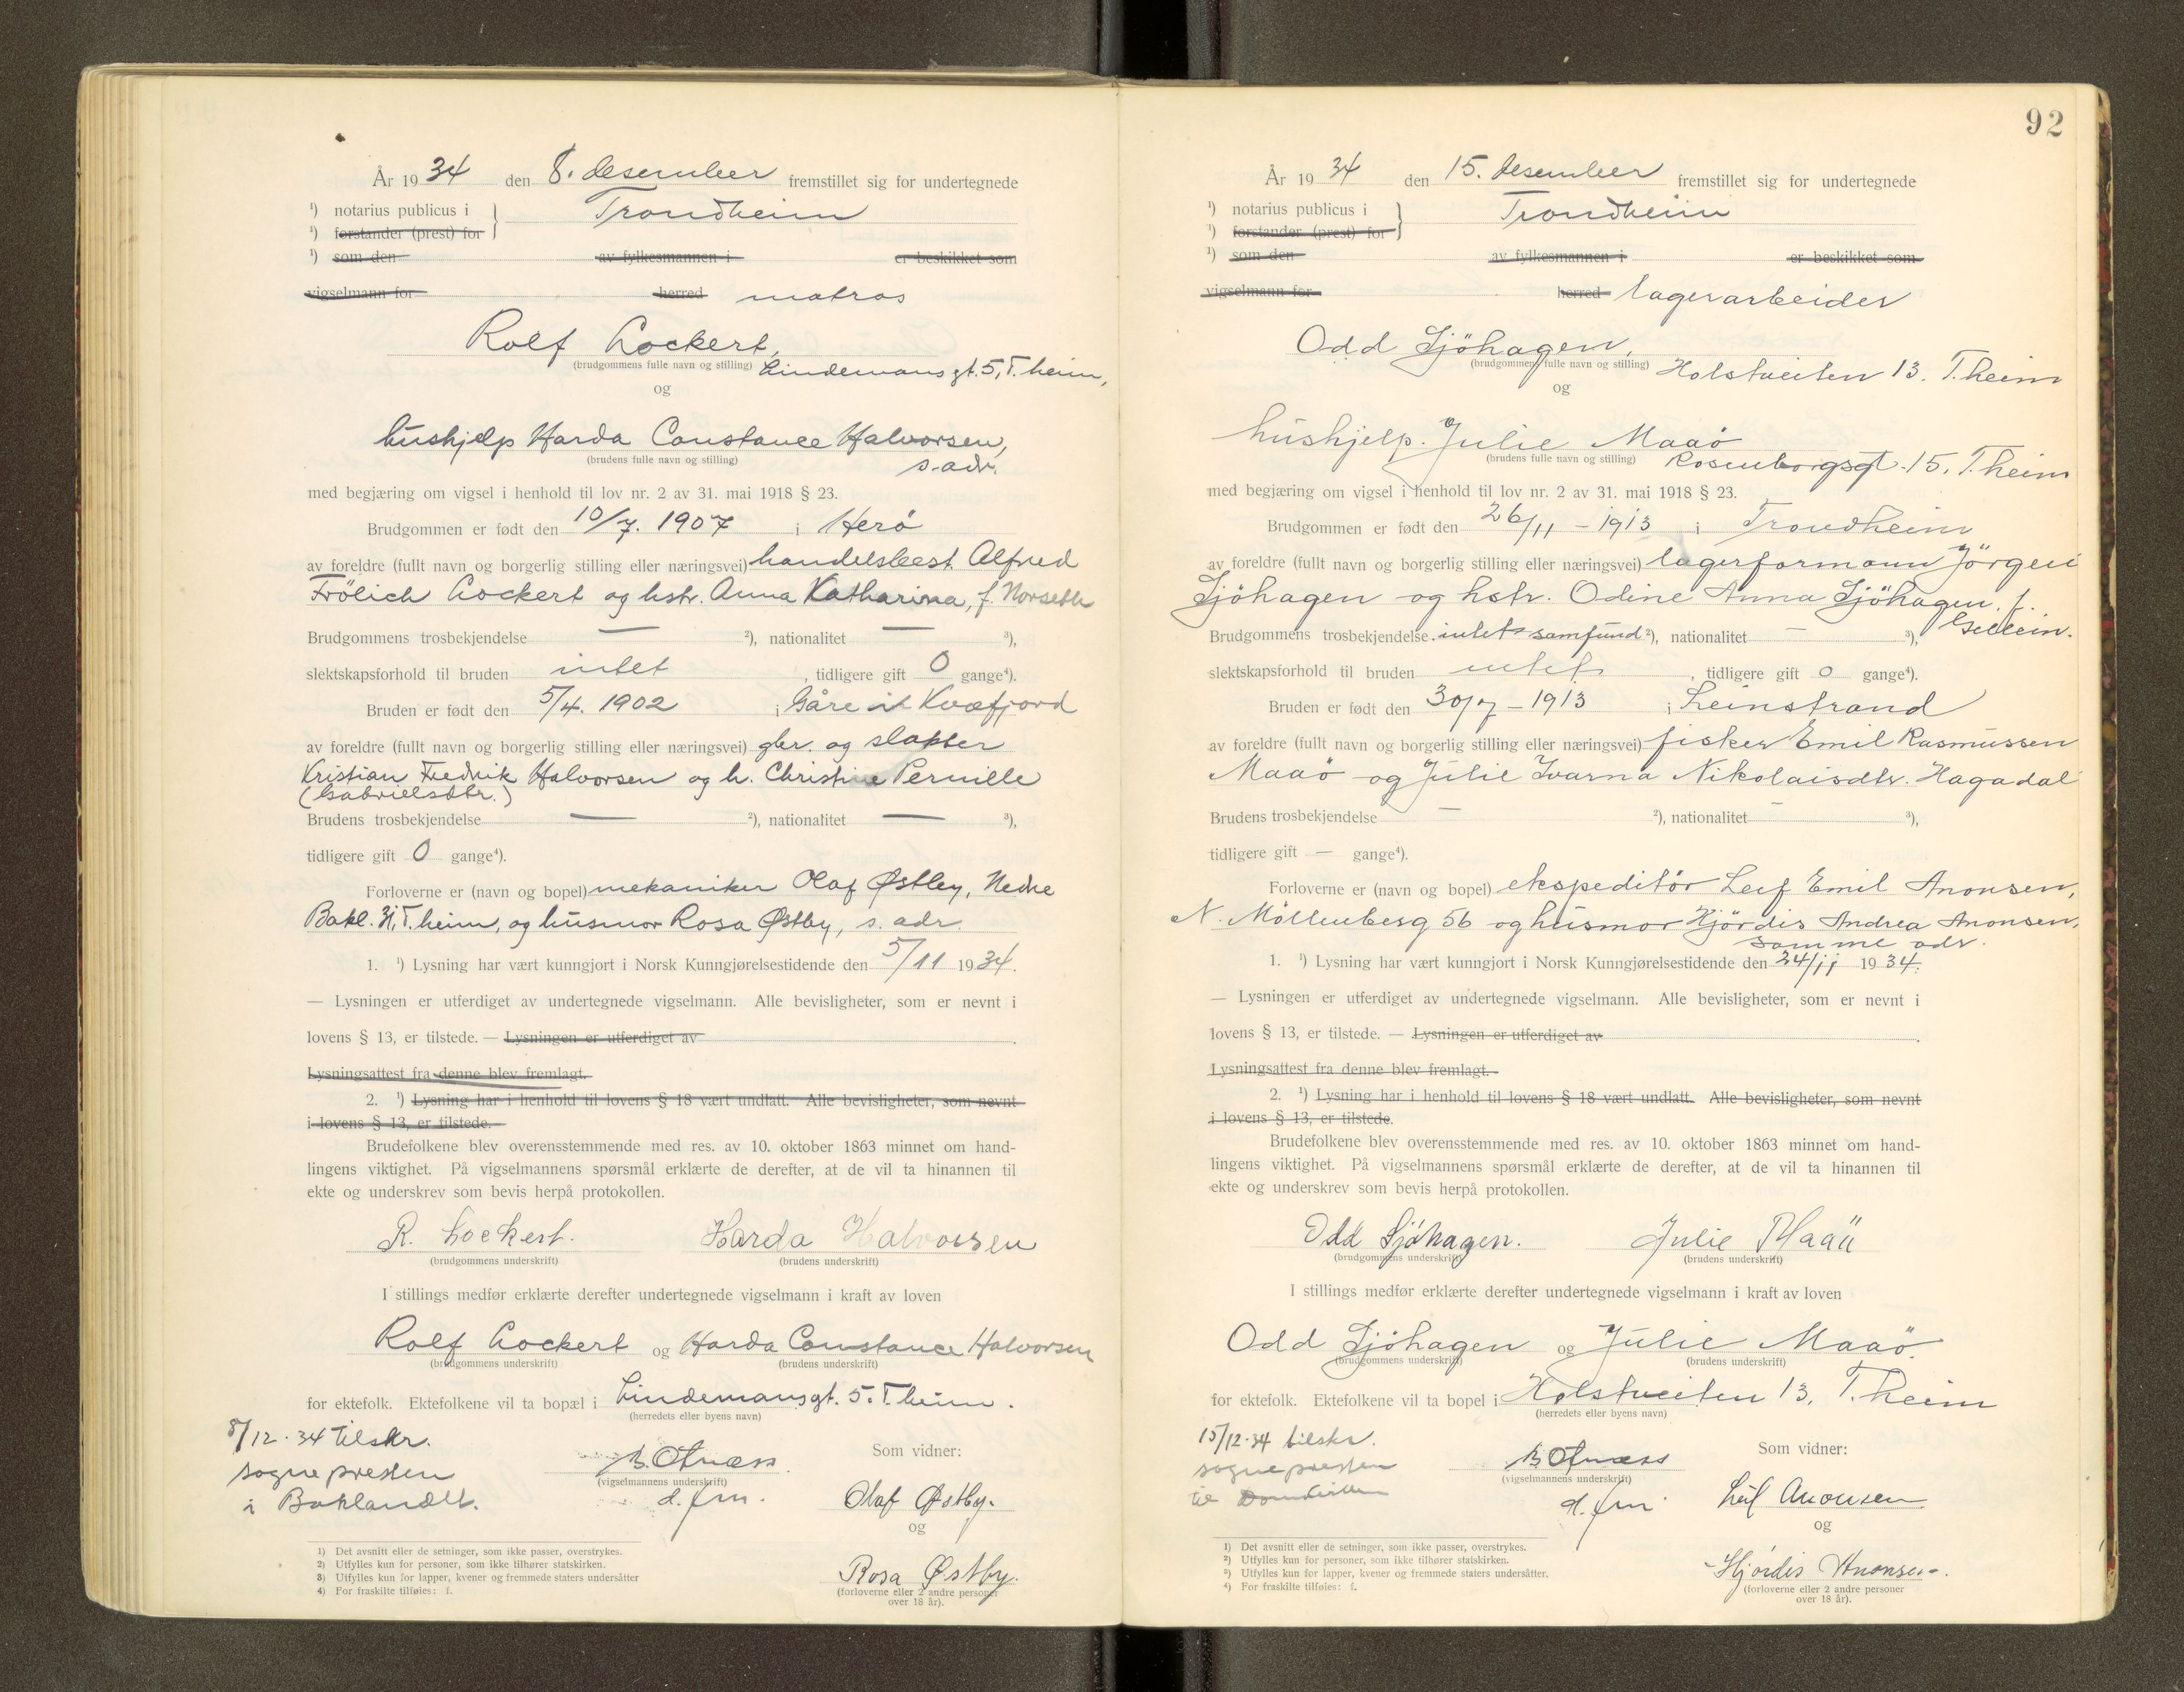 År 1934 den 8. desember fremstillet sig for undertegnede
¹) notarius publicus i } Trondheim
¹) forstander (prest) for
¹) som den av fylkesmannen i er beskikket som
vigselmann for herred matros
Rolf Lockert,
(brudgommens fulle navn og stilling) Lindemans gt. 5, T.heim,
og
hushjelp Harda Constance Halvorsen,
(brudens fulle navn og stilling) s. adr.
med begjæring om vigsel i henhold til lov nr. 2 av 31. mai 1918 § 23.
Brudgommen er født den 10/7. 1907 i Herö
av foreldre (fullt navn og borgerlig stilling eller næringsvei) handelsbest. Alfred
Frölich Lockert og hstr. Anna Katharina, f. Norseth
Brudgommens trosbekjendelse — ²), nationalitet — ³),
slektskapsforhold til bruden intet, tidligere gift 0 gange⁴).
Bruden er født den 5/4. 1902 i Gåre i Kvæfjord
av foreldre (fullt navn og borgerlig stilling eller næringsvei) gbr. og slakter
Kristian Fredrik Halvorsen og h. Christine Pernille
(Gabrielsdtr.)
Brudens trosbekjendelse — ²), nationalitet — ³),
tidligere gift 0 gange⁴).
Forloverne er (navn og bopel) mekaniker Olaf Østby, Nedre
Bakl. T.heim, og husmor Rosa Østby, s. adr.
1. ¹) Lysning har vært kunngjort i Norsk Kunngjørelsestidende den 5/11 1934.
— Lysningen er utferdiget av undertegnede vigselmann. Alle bevisligheter, som er nevnt i
lovens § 13, er tilstede. — Lysningen er utferdiget av .
Lysningsattest fra denne blev fremlagt.
2. ¹) Lysning har i henhold til lovens § 18 vært undlatt. Alle bevisligheter, som nevnt
i lovens § 13, er tilstede.
Brudefolkene blev overensstemmende med res. av 10. oktober 1863 minnet om hand-
lingens viktighet. På vigselmannens spørsmål erklærte de derefter, at de vil ta hinannen til
ekte og underskrev som bevis herpå protokollen.
R. Lockert. Harda Halvorsen
(brudgommens underskrift) (brudens underskrift)
I stillings medfør erklærte derefter undertegnede vigselmann i kraft av loven
Rolf Lockert og Harda Constance Halvorsen
(brudgommens underskrift) (brudens underskrift)
for ektefolk. Ektefolkene vil ta bopæl i Lindemansgt. 5. T.heim.
(herredets eller byens navn)
8/12.34 tilskr.
sognepresten
i Baklandet.
B. Otnæss
(vigselmannens underskrift)
d. fm.
Som vidner:
Olaf Østby.
og
Rosa Østby.
(forloverne eller 2 andre personer
over 18 år).
1) Det avsnitt eller de setninger, som ikke passer, overstrykes.
2) Utfylles kun for personer, som ikke tilhører statskirken.
3) Utfylles kun for lapper, kvener og fremmede staters undersåtter
4) For fraskilte tilføies: f.
92
År 1934 den 15. desember fremstillet sig for undertegnede
¹) notarius publicus i } Trondheim
¹) forstander (prest) for
¹) som den av fylkesmannen i er beskikket som
vigselmann for herred lagerarbeider
Odd Sjöhagen,
(brudgommens fulle navn og stilling) Holstveiten 13. T.heim
og
hushjelp. Julie Maaö
(brudens fulle navn og stilling) Rosenborgsgt. 15. T.heim
med begjæring om vigsel i henhold til lov nr. 2 av 31. mai 1918 § 23.
Brudgommen er født den 26/11 - 1913 i Trondheim
av foreldre (fullt navn og borgerlig stilling eller næringsvei) lagerformann Jörgen
Sjöhagen og hstr. Odine Anna Sjöhagen, f.
Gellein.
Brudgommens trosbekjendelse intet samfund ²), nationalitet — ³),
slektskapsforhold til bruden intet, tidligere gift 0 gange⁴).
Bruden er født den 30/7 - 1913 i Leinstrand
av foreldre (fullt navn og borgerlig stilling eller næringsvei) fisker Emil Rasmussen
Maaö og Julie Ivarna Nikolaisdtr. Hagadal
Brudens trosbekjendelse — ²), nationalitet — ³),
tidligere gift — gange⁴).
Forloverne er (navn og bopel) ekspeditör Leif Emil Anonsen,
N. Möllenberg 56 og husmor Hjördis Andrea Anonsen,
samme adr.
1. ¹) Lysning har vært kunngjort i Norsk Kunngjørelsestidende den 24/11 1934.
— Lysningen er utferdiget av undertegnede vigselmann. Alle bevisligheter, som er nevnt i
lovens § 13, er tilstede. — Lysningen er utferdiget av .
Lysningsattest fra denne blev fremlagt.
2. ¹) Lysning har i henhold til lovens § 18 vært undlatt. Alle bevisligheter, som nevnt
i lovens § 13, er tilstede.
Brudefolkene blev overensstemmende med res. av 10. oktober 1863 minnet om hand-
lingens viktighet. På vigselmannens spørsmål erklærte de derefter, at de vil ta hinannen til
ekte og underskrev som bevis herpå protokollen.
Odd Sjöhagen. Julie Maaö
(brudgommens underskrift) (brudens underskrift)
I stillings medfør erklærte derefter undertegnede vigselmann i kraft av loven
Odd Sjöhagen og Julie Maaö.
(brudgommens underskrift) (brudens underskrift)
for ektefolk. Ektefolkene vil ta bopel i Holstveiten 13, T.heim
(herredets eller byens navn)
15/12.34 tilskr.
sognepresten
til
B Otnæss
(vigselmannens underskrift)
d. fm.
Som vidner:
Leif Anonsen
og
Hjördis Anonsen.
(forloverne eller 2 andre personer
over 18 år).
1) Det avsnitt eller de setninger, som ikke passer, overstrykes.
2) Utfylles kun for personer, som ikke tilhører statskirken.
3) Utfylles kun for lapper, kvener og fremmede staters undersåtter.
4) For fraskilte tilføies: f.